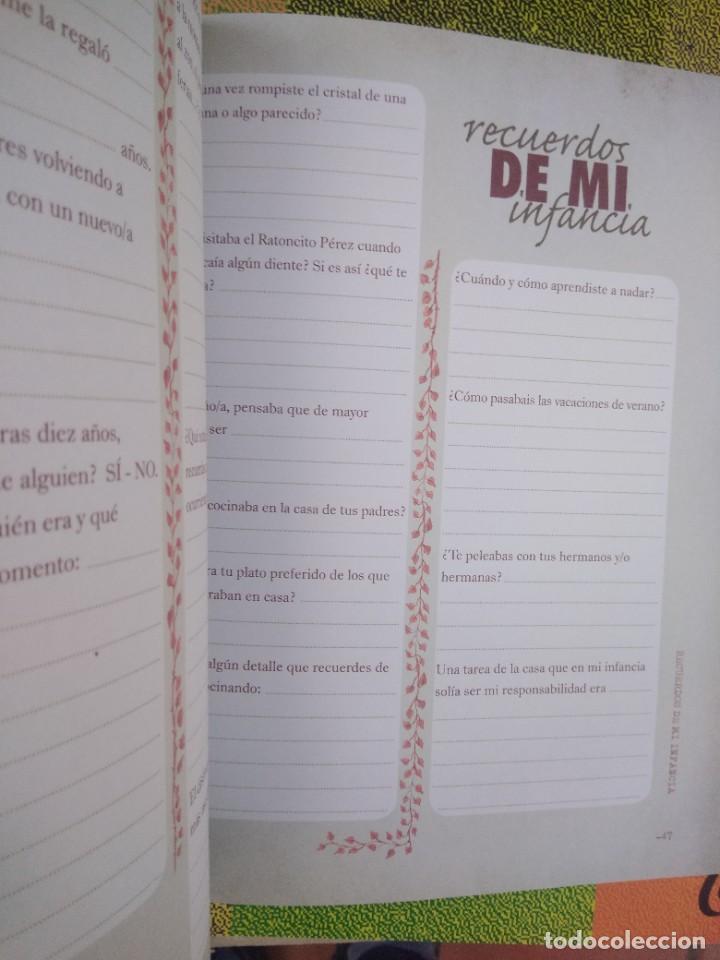 me la regaló
años.
res volviendo a
con un nuevo/a
ras diez años,
e alguien? SÍ - NO.
ién era y qué
omento:
una vez rompiste el cristal de una
na o algo parecido?
isitaba el Ratoncito Pérez cuando
caía algún diente? Si es así ¿qué te
a?
ño/a, pensaba que de mayor
ser
cocinaba en la casa de tus padres?
ra tu plato preferido de los que
raban en casa?
algún detalle que recuerdes de
ocinando:
recuerdos
DE MI
infancia
¿Cuándo y cómo aprendiste a nadar?
¿Cómo pasabais las vacaciones de verano?
¿Te peleabas con tus hermanos y/o
hermanas?
Una tarea de la casa que en mi infancia
solía ser mi responsabilidad era
RECUERDOS DE MI INFANCIA
-47
todocoleccion